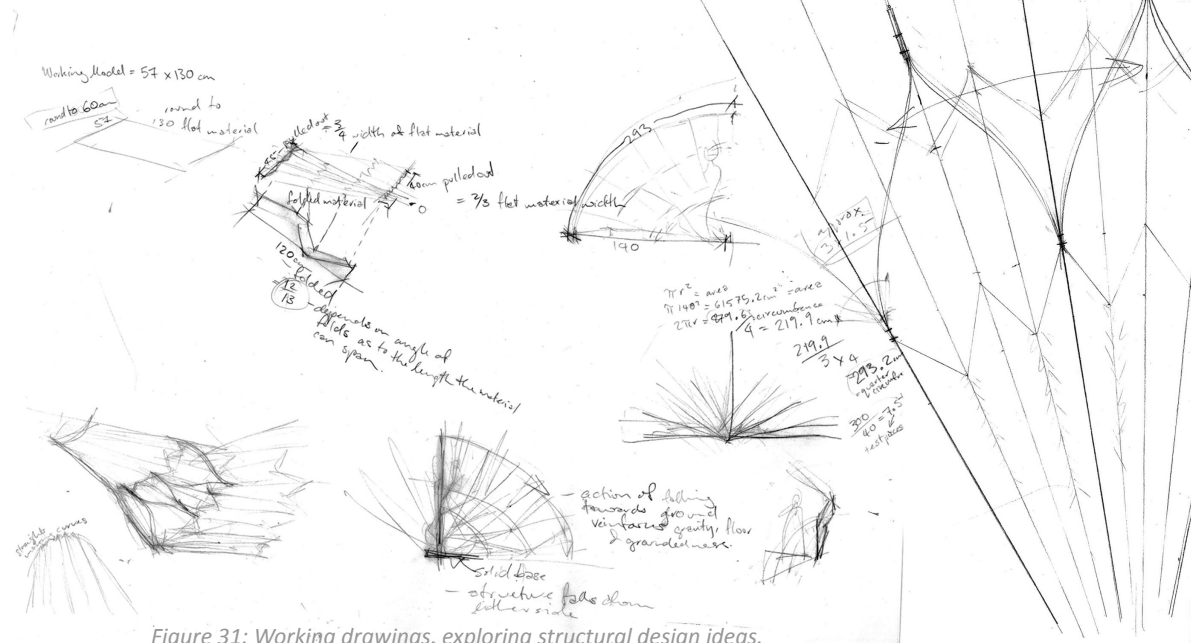 Working Model = 57 x 130 cm
round to 60cm
57
round to
130 flat material
pulled out = 3/4 width of flat material
45
pulled out
= 2/3 flat material width
folded material
0
120cm
folded
12
13
depends on angle of
folds as to the length the material
can span.
293
140
approx.
3 x 1.5
πr² = area
π140² = 61575.2cm² = area
2πr = 879.6 circumference
/4 = 219.9 cm
219.9
3 x 4
293.2
quarter
300
40 = 7.5
straight curves
- action of falling
towards ground
reinforces gravity, floor
& groundedness.
solid base
- structure falls down
either side
Figure 31: Working drawings, exploring structural design ideas.